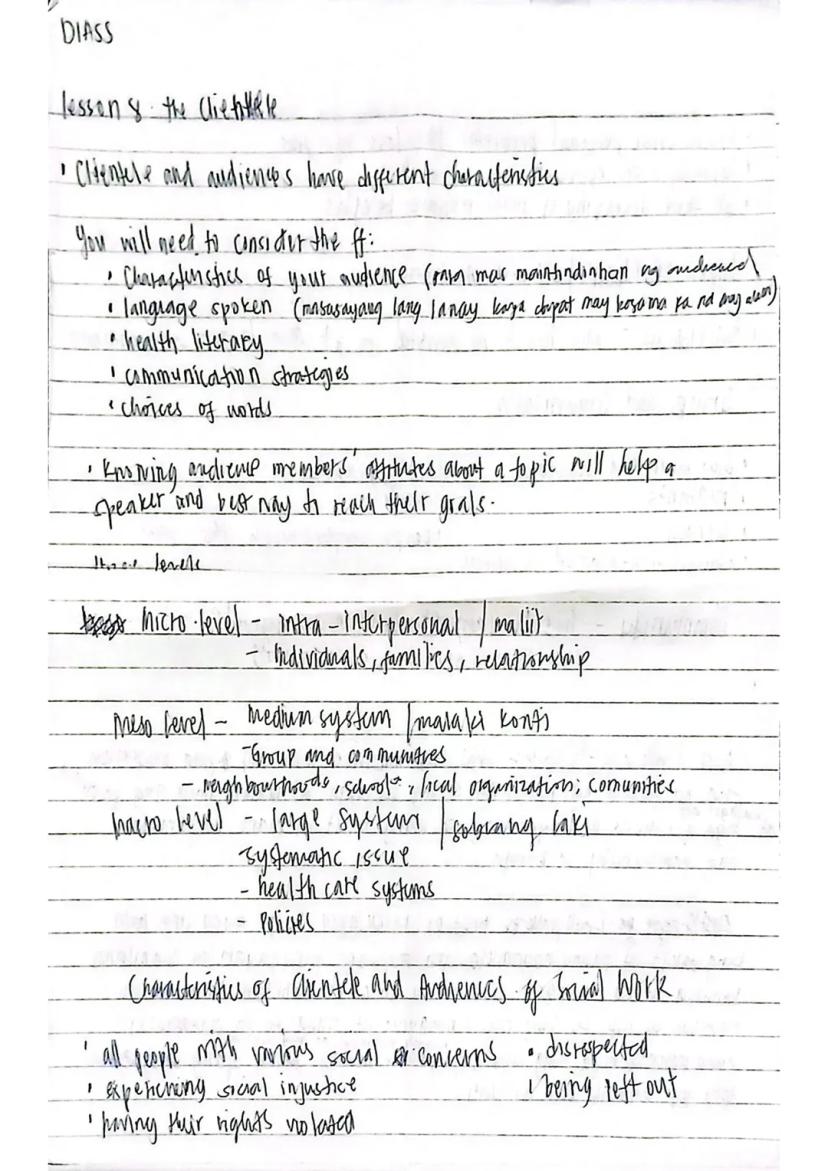 DIASS
lesson 8. the Clientele
• Clientele and audiences have different characteristics
You will need to consider the ff:
• Characteristics of your audience (para mas maintindihan ng audience)
• language spoken (masasayang lang laway kaya dapat may kasama ka na may alam)
• health literary
• communication strategies
• choices of words
• Knowing audience members' attitudes about a topic will help a
speaker and best way to reach their goals.
three levels
Micro-level - intra-interpersonal / maliit
- Individuals, families, relationship
Meso level - Medium system / malaki konti
- Group and communities
- neighbourhoods, schools, local organization; comunities
macro level - large system / sobrang laki
systematic issue
- health care systems
- Policies
Characteristics of Clientele and Audiences of Social Work
• all people with various social concerns • disrespected
• experiening social injustice • being left out
• having their rights violated